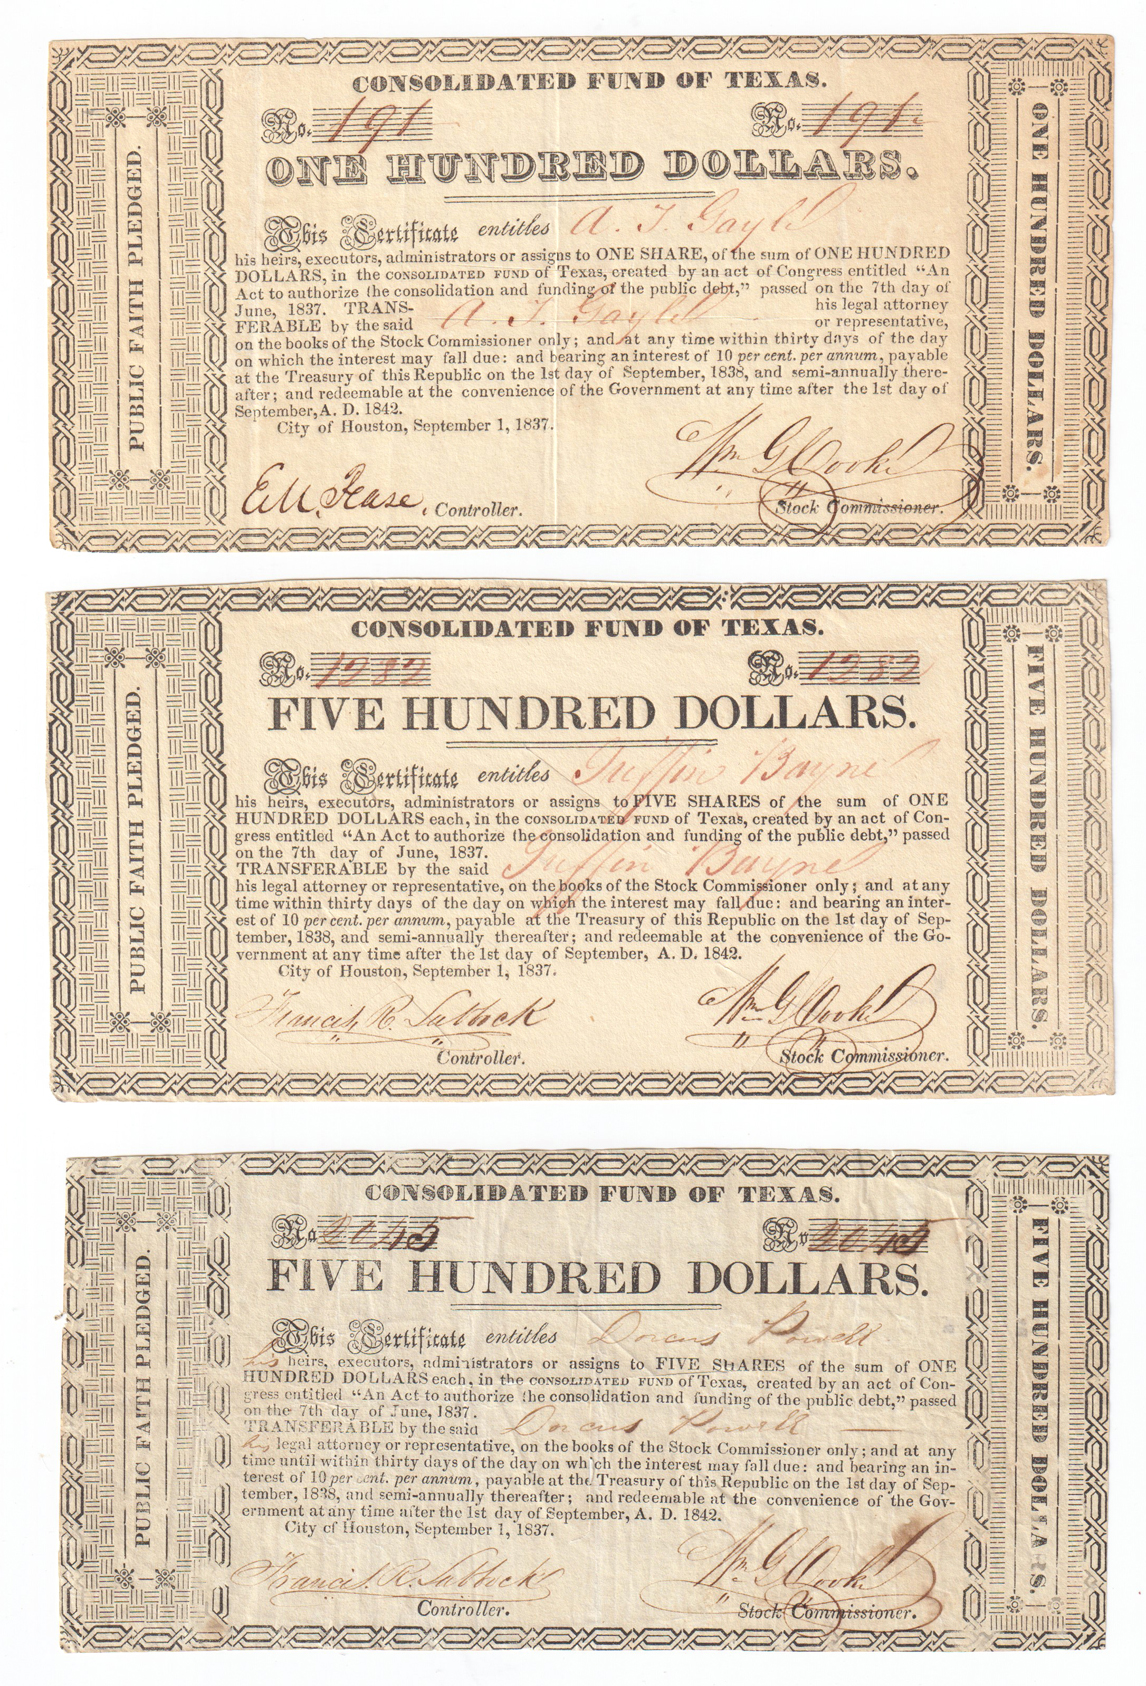 CONSOLIDATED FUND OF TEXAS.
No. 191 No. 191
ONE HUNDRED DOLLARS.
This Certificate entitles A. T. Gayle
his heirs, executors, administrators or assigns to ONE SHARE, of the sum of ONE HUNDRED
DOLLARS, in the CONSOLIDATED FUND of Texas, created by an act of Congress entitled “An
Act to authorize the consolidation and funding of the public debt,” passed on the 7th day of
June, 1837. TRANS- his legal attorney
FERABLE by the said A. T. Gayle or representative,
on the books of the Stock Commissioner only; and at any time within thirty days of the day
on which the interest may fall due: and bearing an interest of 10 per cent. per annum, payable
at the Treasury of this Republic on the 1st day of September, 1838, and semi-annually there-
after; and redeemable at the convenience of the Government at any time after the 1st day of
September, A. D. 1842.
City of Houston, September 1, 1837.
E M. Pease, Controller. Wm G Cooke Stock Commissioner.
PUBLIC FAITH PLEDGED.
ONE HUNDRED DOLLARS.
CONSOLIDATED FUND OF TEXAS.
No. 1282 No. 1282
FIVE HUNDRED DOLLARS.
This Certificate entitles Bayne
his heirs, executors, administrators or assigns to FIVE SHARES of the sum of ONE
HUNDRED DOLLARS each, in the CONSOLIDATED FUND of Texas, created by an act of Con-
gress entitled “An Act to authorize the consolidation and funding of the public debt,” passed
on the 7th day of June, 1837.
TRANSFERABLE by the said Bayne
his legal attorney or representative, on the books of the Stock Commissioner only; and at any
time within thirty days of the day on which the interest may fall due: and bearing an inter-
est of 10 per cent. per annum, payable at the Treasury of this Republic on the 1st day of Sep-
tember, 1838, and semi-annually thereafter; and redeemable at the convenience of the Go-
vernment at any time after the 1st day of September, A. D. 1842.
City of Houston, September 1, 1837.
Francis R. Lubbock Wm G Cooke
Controller. Stock Commissioner.
PUBLIC FAITH PLEDGED.
FIVE HUNDRED DOLLARS.
CONSOLIDATED FUND OF TEXAS.
No 2045 No 2045
FIVE HUNDRED DOLLARS.
This Certificate entitles Dorcus Powell
his heirs, executors, administrators or assigns to FIVE SHARES of the sum of ONE
HUNDRED DOLLARS each, in the CONSOLIDATED FUND of Texas, created by an act of Con-
gress entitled “An Act to authorize the consolidation and funding of the public debt,” passed
on the 7th day of June, 1837.
TRANSFERABLE by the said Dorcus Powell
his legal attorney or representative, on the books of the Stock Commissioner only; and at any
time until within thirty days of the day on which the interest may fall due: and bearing an in-
terest of 10 per cent. per annum, payable at the Treasury of this Republic on the 1st day of Sep-
tember, 1838, and semi-annually thereafter; and redeemable at the convenience of the Gov-
ernment at any time after the 1st day of September, A. D. 1842.
City of Houston, September 1, 1837.
Francis R. Lubbock Wm G Cooke
Controller. Stock Commissioner.
PUBLIC FAITH PLEDGED.
FIVE HUNDRED DOLLARS.